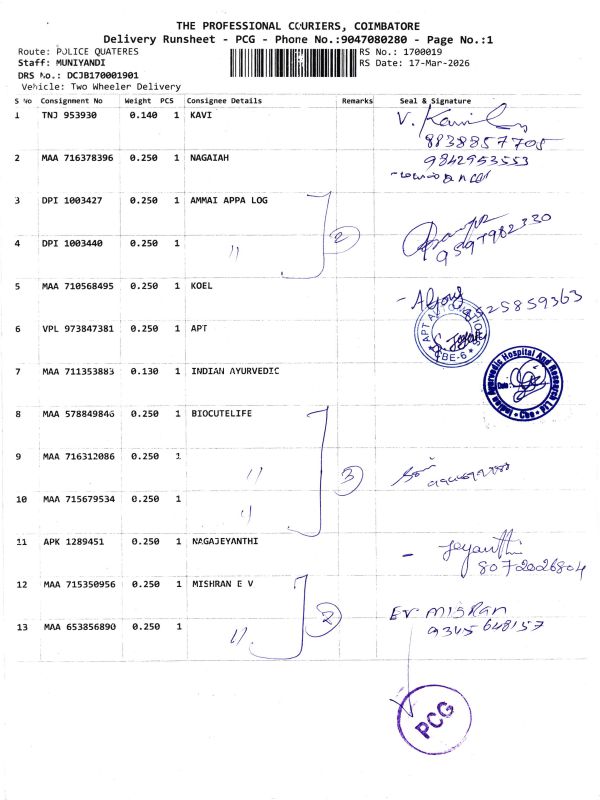 THE PROFESSIONAL COURIERS, COIMBATORE
Delivery Runsheet - PCG - Phone No.:9047080280 - Page No.:1
Route: POLICE QUATERES
RS No.: 1700019
Staff: MUNIYANDI
RS Date: 17-Mar-2026
DRS No.: DCJB170001901
Vehicle: Two Wheeler Delivery
S No Consignment No Weight PCS Consignee Details Remarks Seal & Signature
1 TNJ 953930 0.140 1 KAVI V. Kavi
8838857705
2 MAA 716378396 0.250 1 NAGAIAH 9842953553
3 DPI 1003427 0.250 1 AMMAI APPA LOG
4 DPI 1003440 0.250 1 " 2
9597982330
5 MAA 710568495 0.250 1 KOEL
9525859363
6 VPL 973847381 0.250 1 APT
CBE-6
7 MAA 711353883 0.130 1 INDIAN AYURVEDIC
Ayurvedic Hospital And Research
8 MAA 578849846 0.250 1 BIOCUTELIFE
9 MAA 716312086 0.250 1 " 3
10 MAA 715679534 0.250 1 "
11 APK 1289451 0.250 1 NAGAJEYANTHI - Jeyanthi
8072026804
12 MAA 715350956 0.250 1 MISHRAN E V EV MISRAN
9345648157
13 MAA 653856890 0.250 1 " 2
PCG